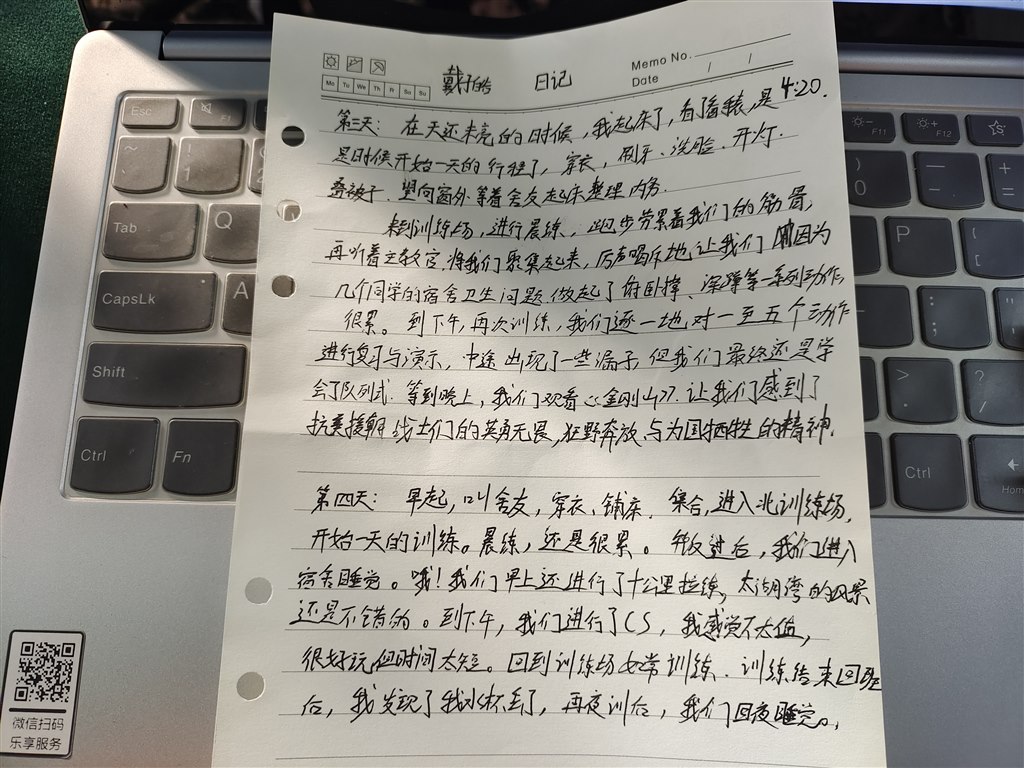 Memo No.
Mo Tu We Th Fr Sa Su
Date / /
戴子皓 日记
第三天：在天还未亮的时候，我起来了，看了看表，是4:20.
是时候开始一天的行程了，穿衣，刷牙、洗脸、开灯.
叠被子.望向窗外等着舍友起床整理内务.
来到训练场，进行晨练，跑步劳累着我们的筋骨，
再听着主教官将我们聚集起来，厉声喝斥地让我们因为
几个同学的宿舍卫生问题做起了俯卧撑、深蹲等一系列动作，
很累。到下午，再次训练，我们逐一地对一至五个动作
进行复习与演示，中途出现了一些漏子，但我们最终还是学
会了队列式.等到晚上，我们观看《金刚山》.让我们感到了
抗美援朝战士们的英勇无畏，狂野奔放与为国牺牲的精神.
第四天：早起，叫舍友，穿衣、铺床.集合，进入北训练场，
开始一天的训练。晨练，还是很累。午饭过后，我们进入
宿舍睡觉。哦！我们早上还进行了十公里拉练，太湖湾的风景
还是不错的。到下午，我们进行了CS，我感觉不太值，
很好玩，但时间太短。回到训练场如常训练.训练结束回班
后，我发现了我水杯丢了，再夜训后，我们回夜睡觉。
Esc
F1
F11
F12
Tab
Q
P
CapsLk
A
Shift
Ctrl
Fn
Ctrl
Home
微信扫码
乐享服务